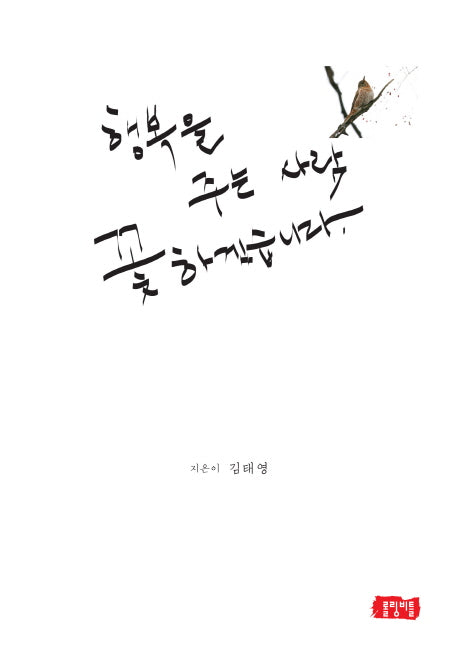 행복을
주는 사람
꽃하겠습니다.
지은이 김태영
롤링비틀